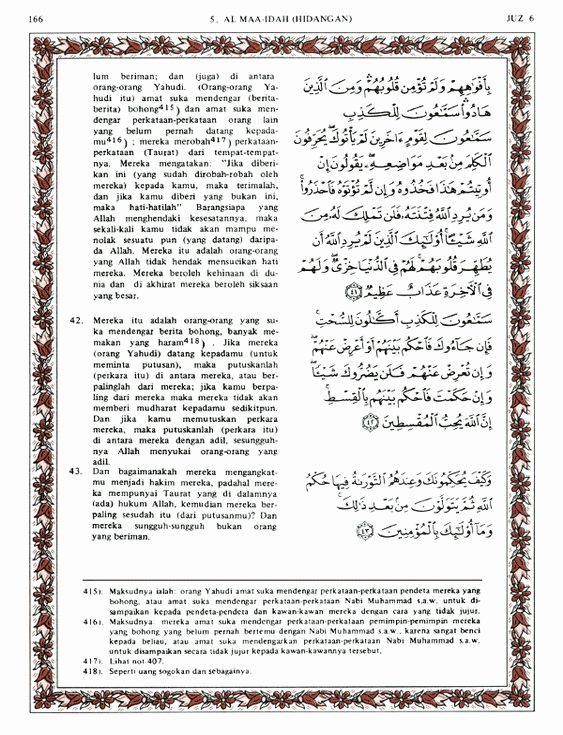 166
5. AL MAA-IDAH (HIDANGAN)
JUZ 6
lum beriman; dan (juga) di antara
orang-orang Yahudi. (Orang-orang Ya-
hudi itu) amat suka mendengar (berita-
berita) bohong415) dan amat suka men-
dengar perkataan-perkataan orang lain
yang belum pernah datang kepada-
mu416) ; mereka merobah417) perkataan-
perkataan (Taurat) dari tempat-tempat-
nya. Mereka mengatakan: "Jika diberi-
kan ini (yang sudah dirobah-robah oleh
mereka) kepada kamu, maka terimalah,
dan jika kamu diberi yang bukan ini,
maka hati-hatilah" Barangsiapa yang
Allah menghendaki kesesatannya, maka
sekali-kali kamu tidak akan mampu me-
nolak sesuatu pun (yang datang) daripa-
da Allah. Mereka itu adalah orang-orang
yang Allah tidak hendak mensucikan hati
mereka. Mereka beroleh kehinaan di du-
nia dan di akhirat mereka beroleh siksaan
yang besar.
42. Mereka itu adalah orang-orang yang su-
ka mendengar berita bohong, banyak me-
makan yang haram418) . Jika mereka
(orang Yahudi) datang kepadamu (untuk
meminta putusan), maka putuskanlah
(perkara itu) di antara mereka, atau ber-
palinglah dari mereka; jika kamu berpa-
ling dari mereka maka mereka tidak akan
memberi mudharat kepadamu sedikitpun.
Dan jika kamu memutuskan perkara
mereka, maka putuskanlah (perkara itu)
di antara mereka dengan adil, sesungguh-
nya Allah menyukai orang-orang yang
adil.
43. Dan bagaimanakah mereka mengangkat-
mu menjadi hakim mereka, padahal mere-
ka mempunyai Taurat yang di dalamnya
(ada) hukum Allah, kemudian mereka ber-
paling sesudah itu (dari putusanmu)? Dan
mereka sungguh-sungguh bukan orang
yang beriman.
بِأَفْوَاهِهِمْ وَلَمْ تُؤْمِن قُلُوبُهُمْ وَمِنَ الَّذِينَ
هَادُوا سَمَّاعُونَ لِلْكَذِبِ
سَمَّاعُونَ لِقَوْمٍ ءَاخَرِينَ لَمْ يَأْتُوكَ يُحَرِّفُونَ
الْكَلِمَ مِنْ بَعْدِ مَوَاضِعِهِ يَقُولُونَ إِنْ
أُوتِيتُمْ هَٰذَا فَخُذُوهُ وَإِن لَّمْ تُؤْتَوْهُ فَاحْذَرُوا
وَمَن يُرِدِ اللَّهُ فِتْنَتَهُ فَلَن تَمْلِكَ لَهُ مِنَ
اللَّهِ شَيْئًا أُولَٰئِكَ الَّذِينَ لَمْ يُرِدِ اللَّهُ أَن
يُطَهِّرَ قُلُوبَهُمْ لَهُمْ فِي الدُّنْيَا خِزْيٌ وَلَهُمْ
فِي الْآخِرَةِ عَذَابٌ عَظِيمٌ ﴿٤١﴾
سَمَّاعُونَ لِلْكَذِبِ أَكَّالُونَ لِلسُّحْتِ
فَإِن جَاءُوكَ فَاحْكُم بَيْنَهُمْ أَوْ أَعْرِضْ عَنْهُمْ
وَإِن تُعْرِضْ عَنْهُمْ فَلَن يَضُرُّوكَ شَيْئًا
وَإِنْ حَكَمْتَ فَاحْكُم بَيْنَهُم بِالْقِسْطِ
إِنَّ اللَّهَ يُحِبُّ الْمُقْسِطِينَ ﴿٤٢﴾
وَكَيْفَ يُحَكِّمُونَكَ وَعِندَهُمُ التَّوْرَىٰةُ فِيهَا حُكْمُ
اللَّهِ ثُمَّ يَتَوَلَّوْنَ مِن بَعْدِ ذَٰلِكَ
وَمَا أُولَٰئِكَ بِالْمُؤْمِنِينَ ﴿٤٣﴾
415). Maksudnya ialah: orang Yahudi amat suka mendengar perkataan-perkataan pendeta mereka yang
bohong, atau amat suka mendengar perkataan-perkataan Nabi Muhammad s.a.w. untuk di-
sampaikan kepada pendeta-pendeta dan kawan-kawan mereka dengan cara yang tidak jujur.
416). Maksudnya: mereka amat suka mendengar perkataan-perkataan pemimpin-pemimpin mereka
yang bohong yang belum pernah bertemu dengan Nabi Muhammad s.a.w., karena sangat benci
kepada beliau, atau amat suka mendengarkan perkataan-perkataan Nabi Muhammad s.a.w.
untuk disampaikan secara tidak jujur kepada kawan-kawannya tersebut.
417). Lihat not 407.
418). Seperti uang sogokan dan sebagainya.